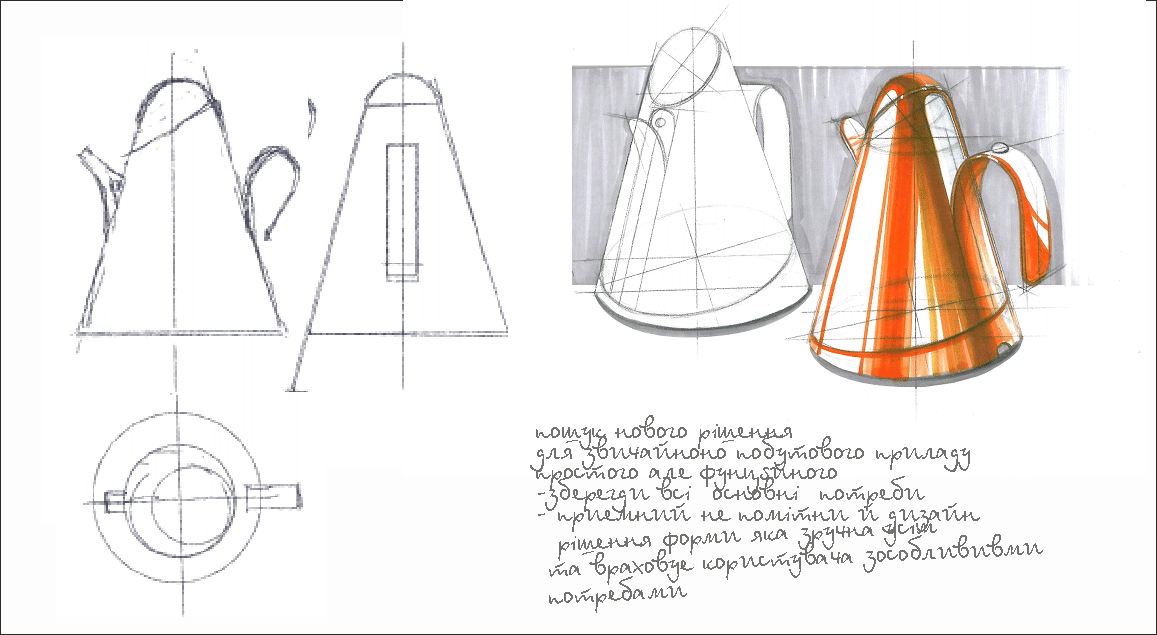 пошук нового рішення
для звичайноно побутового приладу
простого але функційного
-зберегди всі основні потреби
- приемний не помітни й дизайн
рішення форми яка зручна усім
та враховує користувача зособлививми
потребами